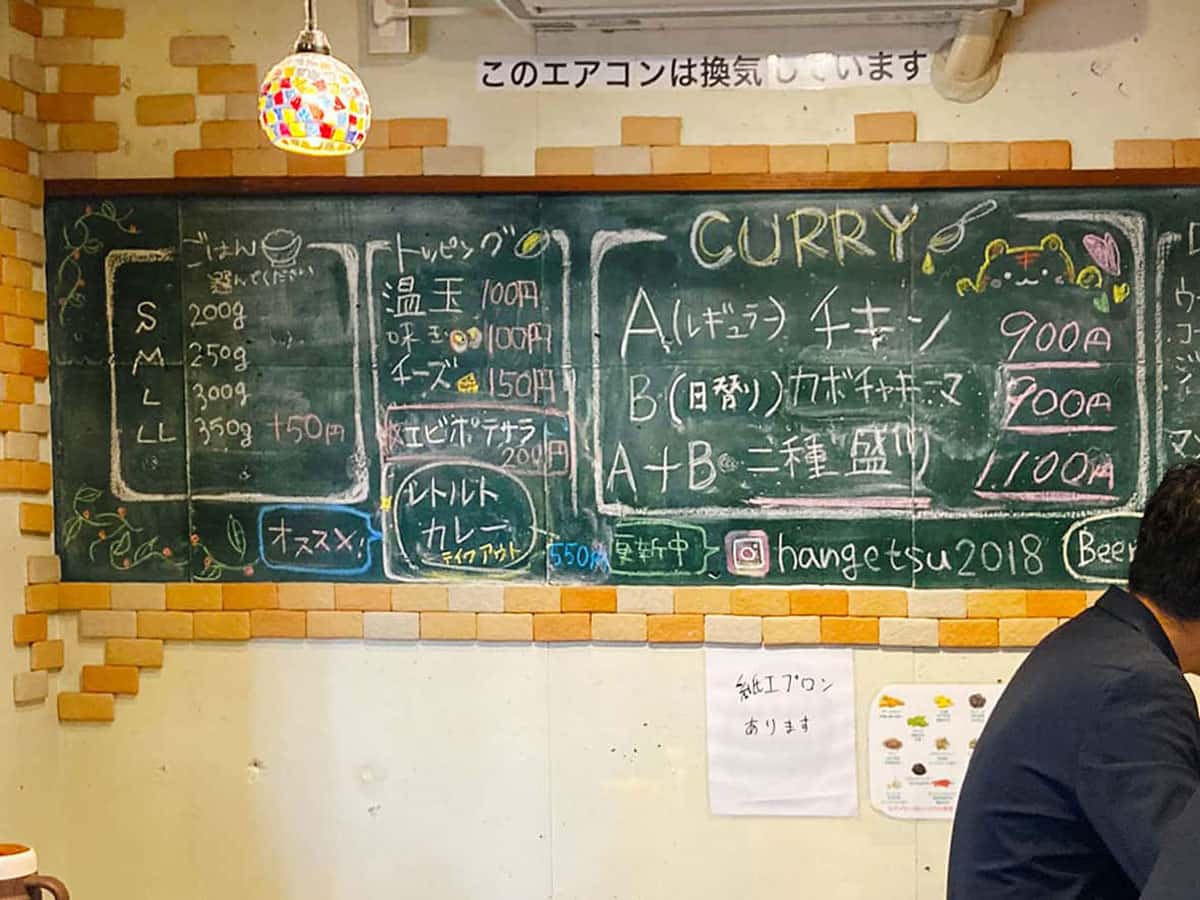 このエアコンは換気しています
ごはん
選んでください
S 200g
M 250g
L 300g
LL 350g +50円
トッピング
温玉 100円
味玉 100円
チーズ 150円
エビポテサラ
200円
オススメ!
レトルト
カレー
テイクアウト
550円
CURRY
A(レギュラー) チキン 900円
B(日替り)カボチャキーマ 900円
A+B 二種盛り 1100円
更新中
hangetsu2018
Beer
紙エプロン
あります